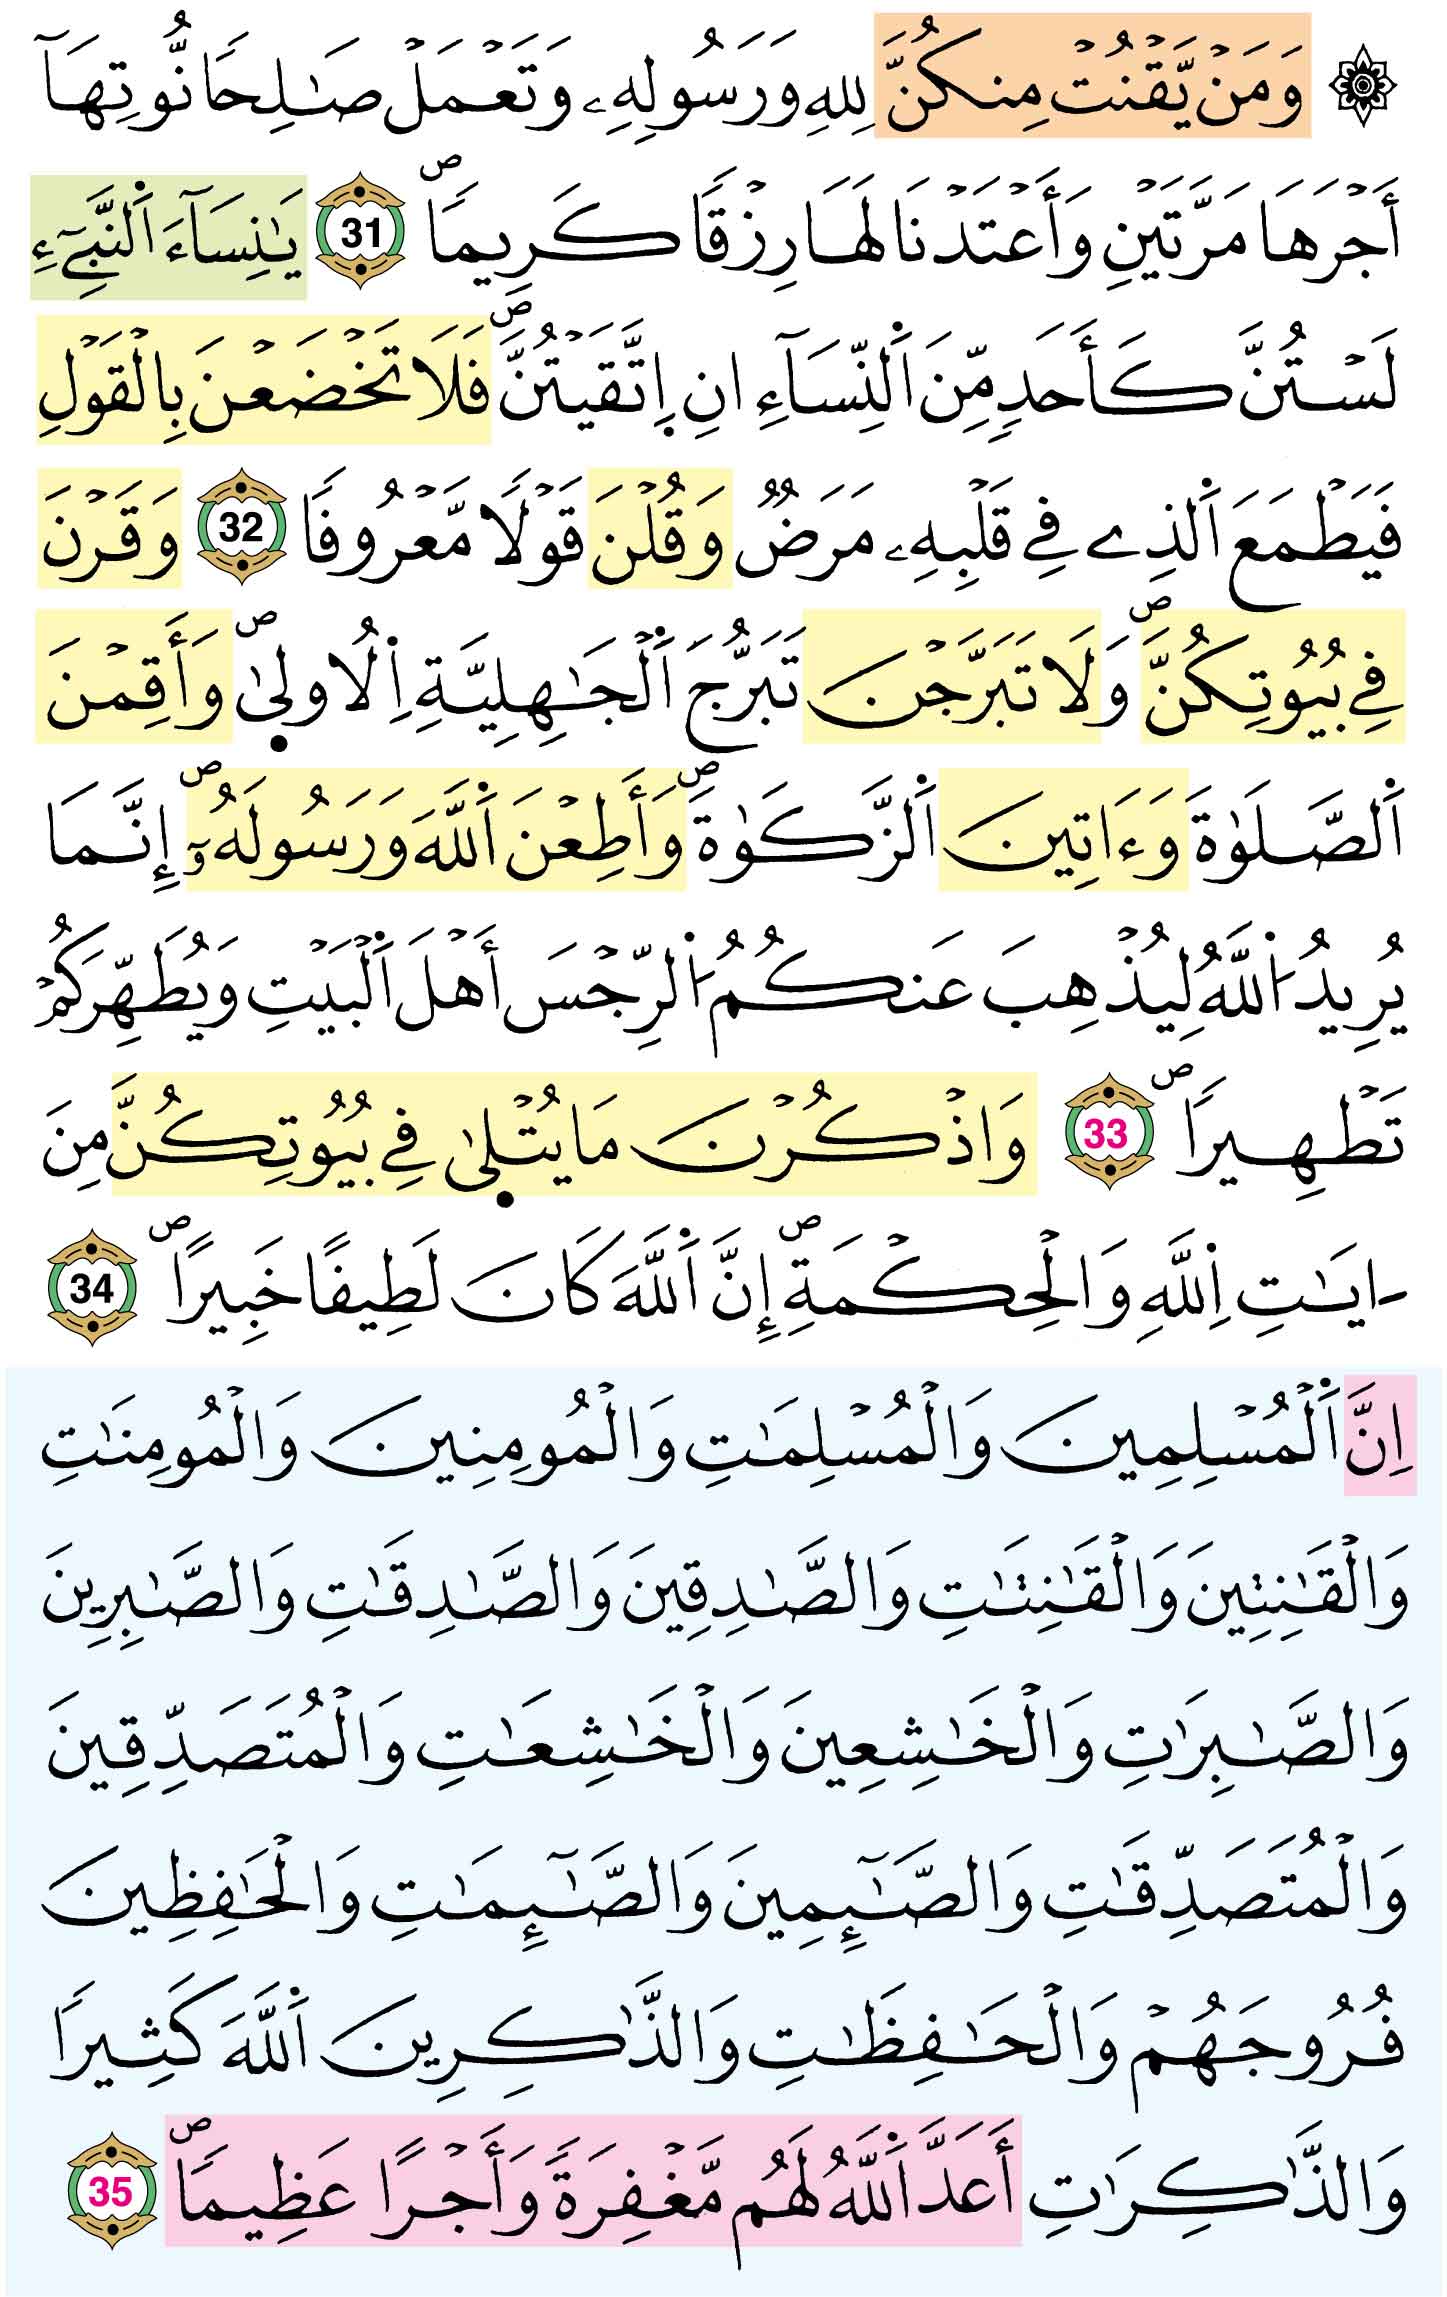 ۞ وَمَنْ يَّقْنُتْ مِنكُنَّ لِلهِ وَرَسُولِهِۦ وَتَعْمَلْ صَٰلِحاٗ نُّوتِهَآ
أَجْرَهَا مَرَّتَيْنِ وَأَعْتَدْنَا لَهَا رِزْقاٗ كَرِيماٗۖ 31 يَٰنِسَآءَ اَ۬لنَّبِےٓءِ
لَسْتُنَّ كَأَحَدٖ مِّنَ اَ۬لنِّسَآءِ انِ اِ۪تَّقَيْتُنَّۖ فَلَا تَخْضَعْنَ بِالْقَوْلِ
فَيَطْمَعَ اَ۬لذِے فِے قَلْبِهِۦ مَرَضٞ وَقُلْنَ قَوْلاٗ مَّعْرُوفاٗ 32 وَقَرْنَ
فِے بُيُوتِكُنَّۖ وَلَا تَبَرَّجْنَ تَبَرُّجَ اَ۬لْجَٰهِلِيَّةِ اِ۬لُاول۪ىٰۖ وَأَقِمْنَ
اَ۬لصَّلَوٰةَ وَءَاتِينَ اَ۬لزَّكَوٰةَۖ وَأَطِعْنَ اَ۬للَّهَ وَرَسُولَهُۥٓۖ إِنَّمَا
يُرِيدُ اُ۬للَّهُ لِيُذْهِبَ عَنكُمُ اُ۬لرِّجْسَ أَهْلَ اَ۬لْبَيْتِ وَيُطَهِّرَكُمْ
تَطْهِيراٗۖ 33 وَاذْكُرْنَ مَا يُتْل۪ىٰ فِے بُيُوتِكُنَّ مِنَ
ـ اٰيَٰتِ اِ۬للَّهِ وَالْحِكْمَةِۖ إِنَّ اَ۬للَّهَ كَانَ لَطِيفاً خَبِيراًۖ 34
اِنَّ اَ۬لْمُسْلِمِينَ وَالْمُسْلِمَٰتِ وَالْمُومِنِينَ وَالْمُومِنَٰتِ
وَالْقَٰنِتِينَ وَالْقَٰنِتَٰتِ وَالصَّٰدِقِينَ وَالصَّٰدِقَٰتِ وَالصَّٰبِرِينَ
وَالصَّٰبِرَٰتِ وَالْخَٰشِعِينَ وَالْخَٰشِعَٰتِ وَالْمُتَصَدِّقِينَ
وَالْمُتَصَدِّقَٰتِ وَالصَّٰٓئِمِينَ وَالصَّٰٓئِمَٰتِ وَالْحَٰفِظِينَ
فُرُوجَهُمْ وَالْحَٰفِظَٰتِ وَالذَّٰكِرِينَ اَ۬للَّهَ كَثِيراٗ
وَالذَّٰكِرَٰتِ أَعَدَّ اَ۬للَّهُ لَهُم مَّغْفِرَةٗ وَأَجْراً عَظِيماٗۖ 35